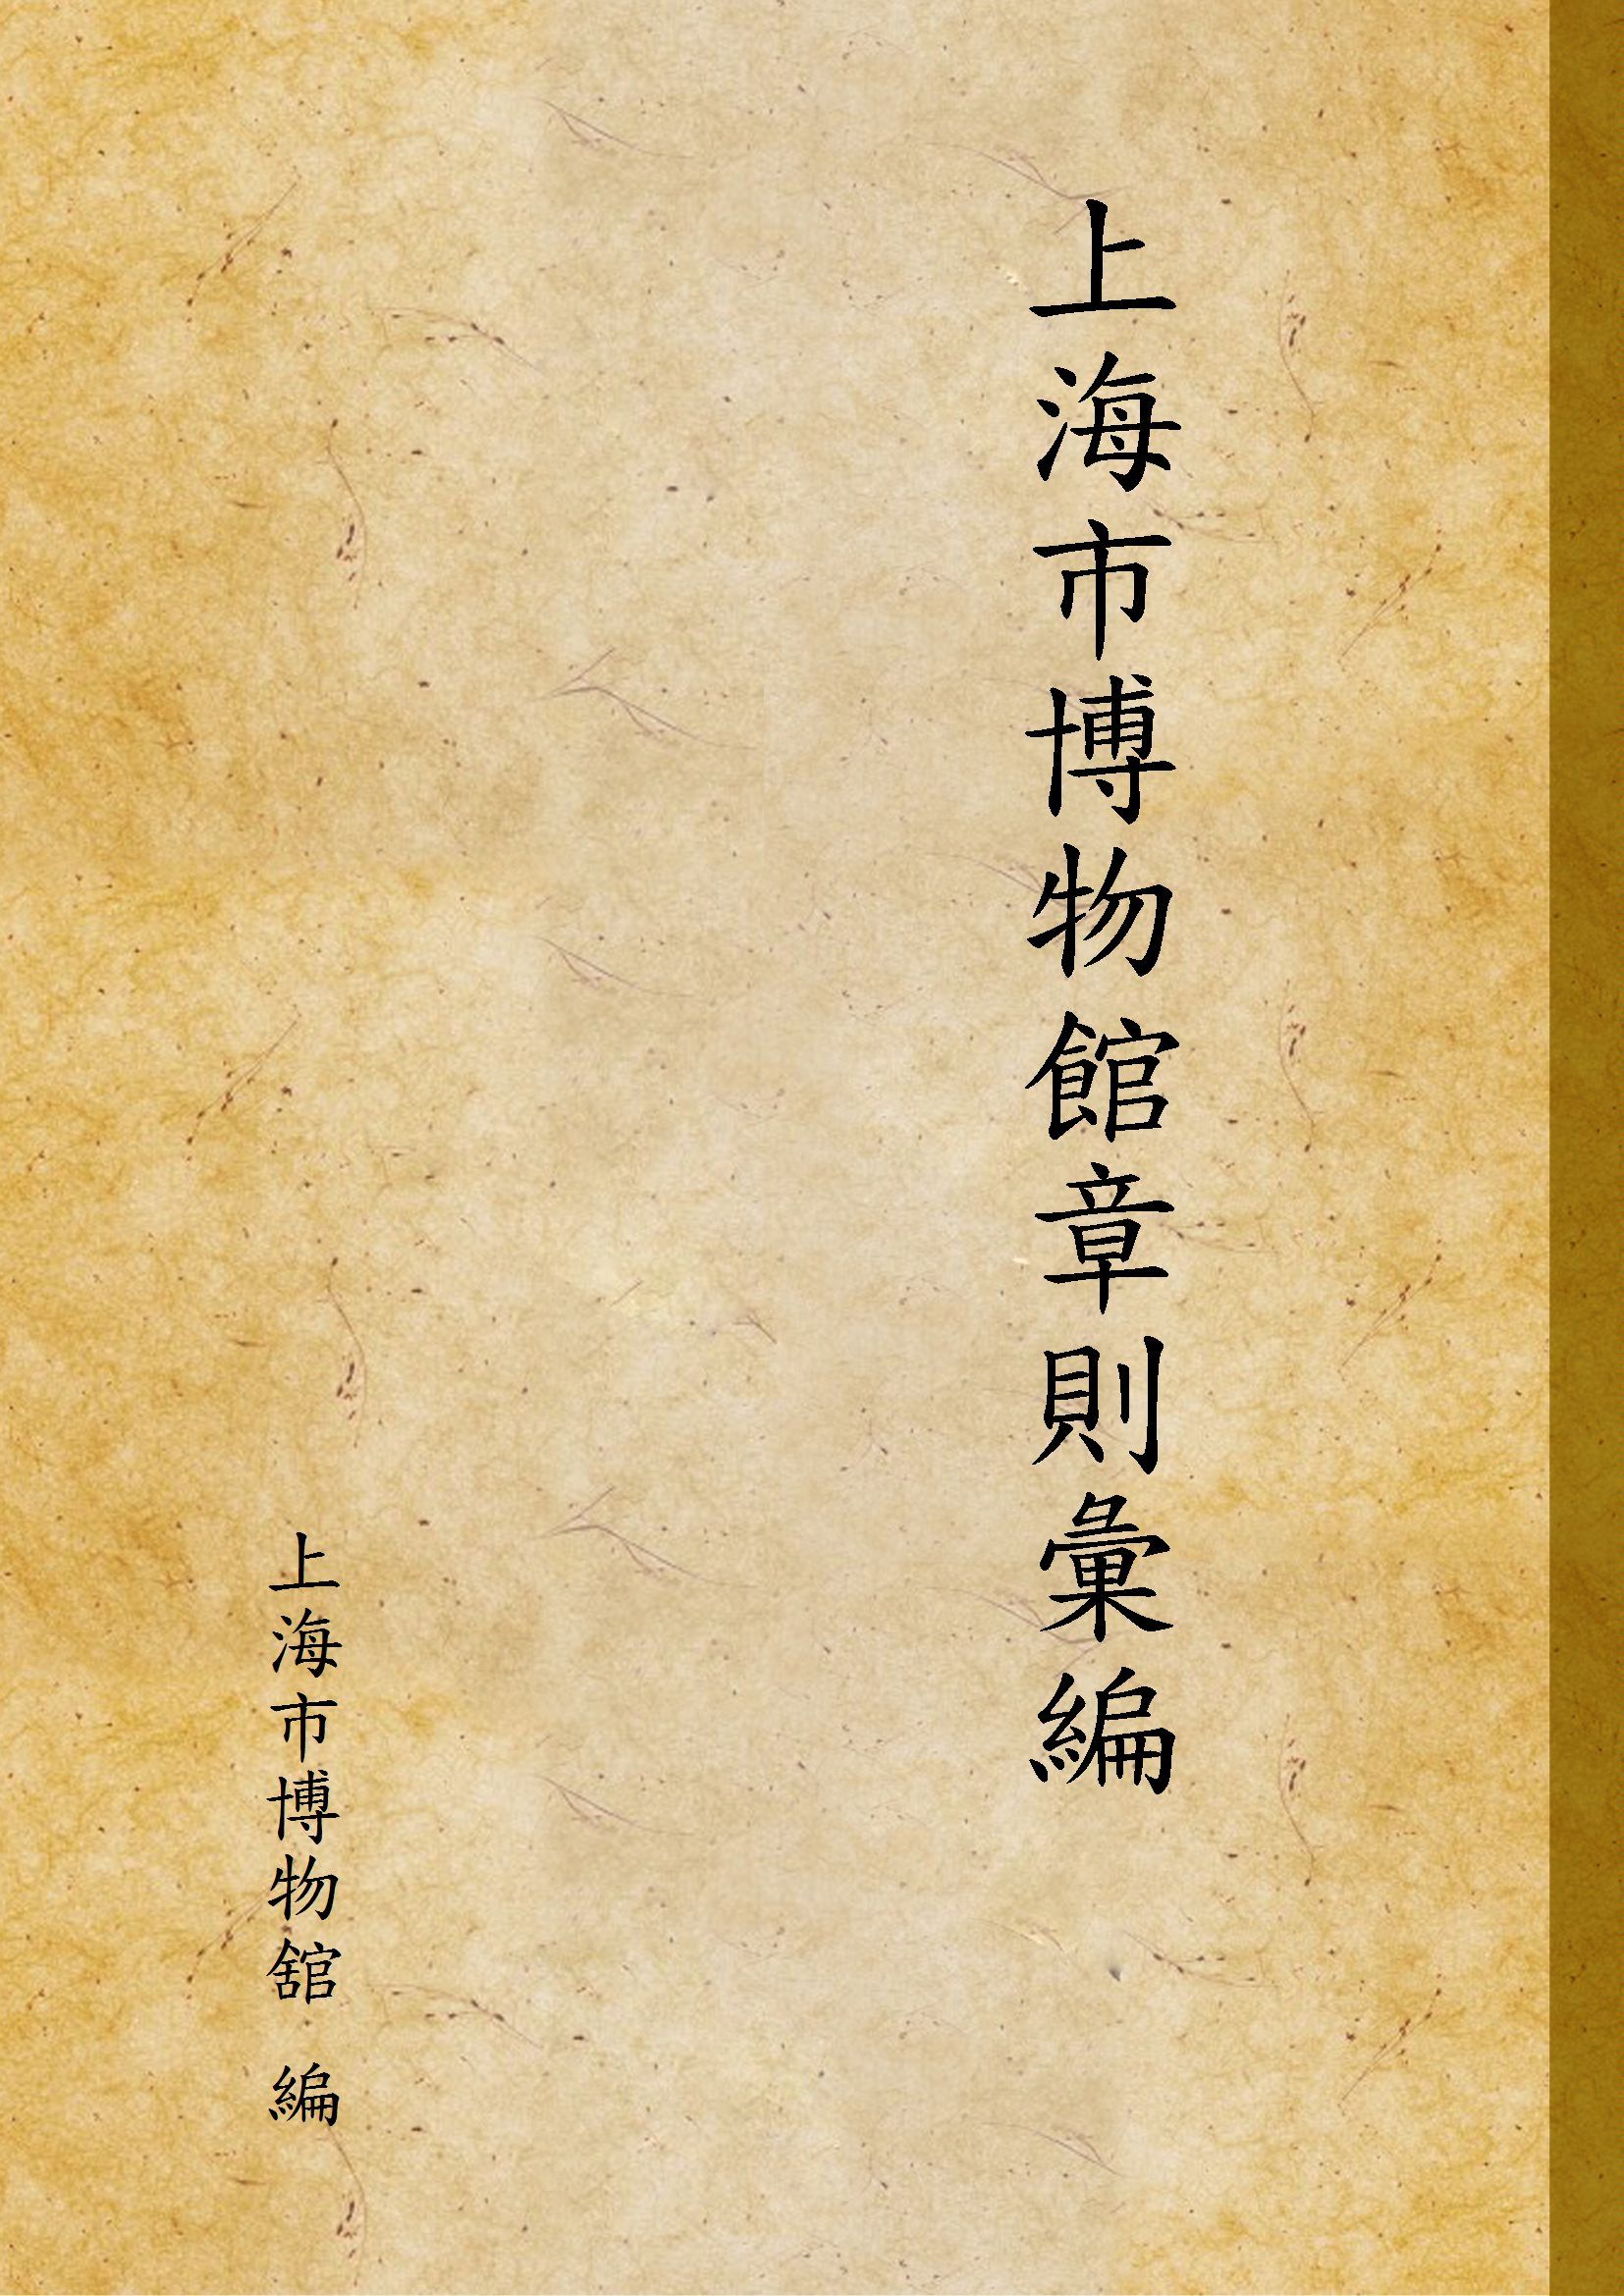 上海市博物館章則彙編
上海市博物舘 編